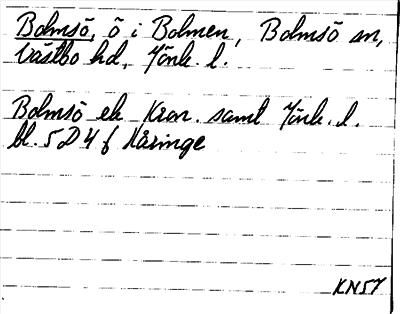 Bolmsö, ö i Bolmen, Bolmsö sn,
Västbo hd, Jönk. l.
Bolmsö ek Kron. samt Jönk. l.
bl. 5 D 4 f Håringe
KN57